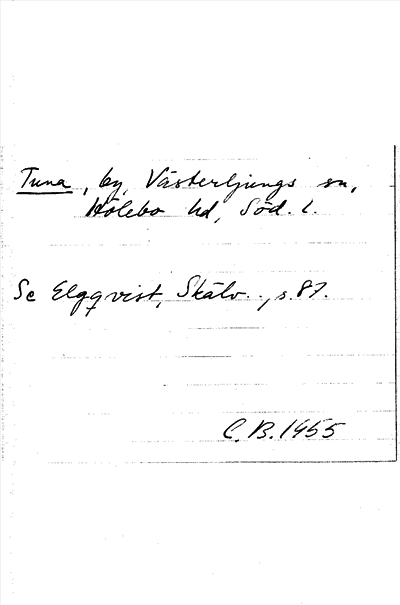 Tuna, by, Västerljungs sn,
Hölebo hd, Söd. l.
Se Elgqvist, Skälv.., s. 87.
C. B. 1955